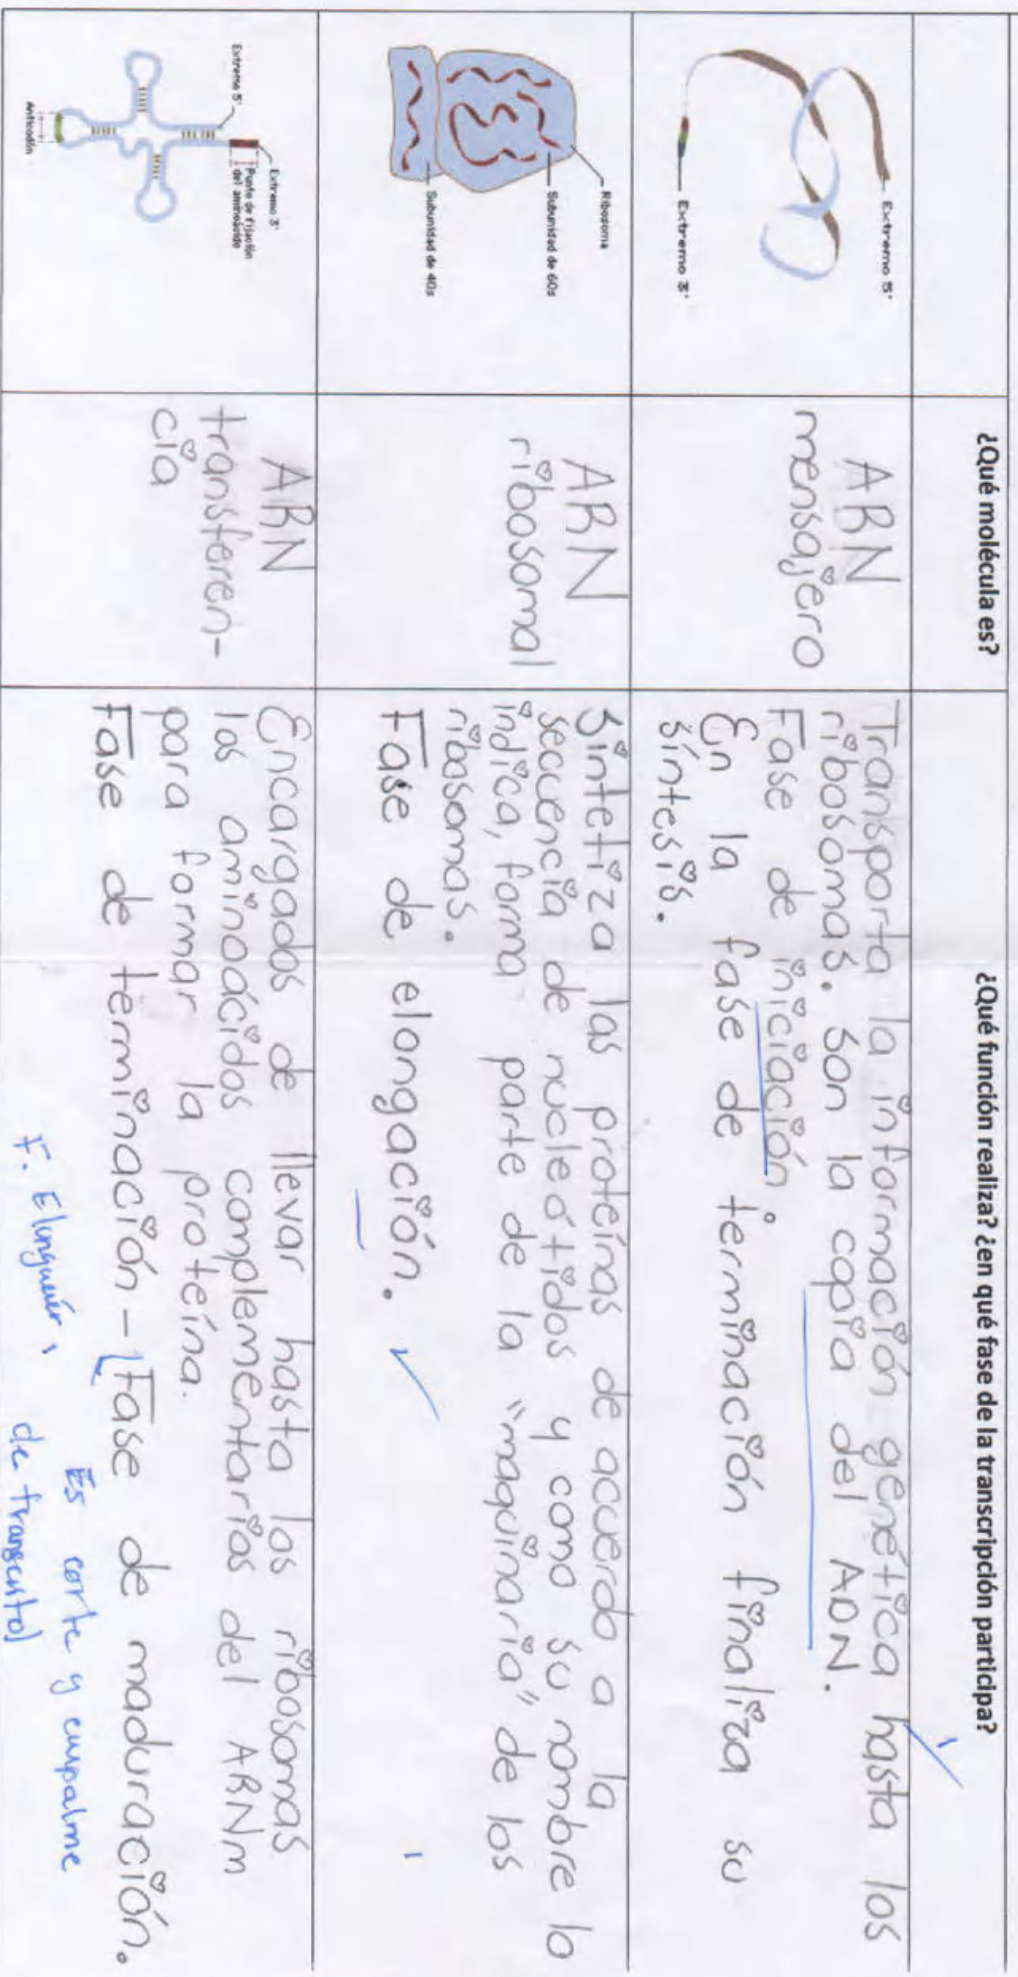 ¿Qué molécula es?
¿Qué función realiza? ¿en qué fase de la transcripción participa?
Extremo 5'
Extremo 3'
ARN
mensajero
Transporta la información genética hasta los
ribosomas. Son la copia del ADN.
Fase de iniciación
En la fase de terminación finaliza su
síntesis.
Ribosoma
Subunidad de 60s
Subunidad de 40s
ARN
ribosomal
Sintetiza las proteínas de acuerdo a la
secuencia de nucleótidos y como su nombre lo
indica, forma parte de la "maquinaria" de los
ribosomas.
Fase de elongación.
Extremo 3'
Punto de fijación
del aminoácido
Extremo 5'
Anticodón
ARN
transferen-
cia
Encargados de llevar hasta los ribosomas
los aminoácidos complementarios del ARNm
para formar la proteína.
Fase de terminación - Fase de maduración.
Es corte y empalme
F.
de